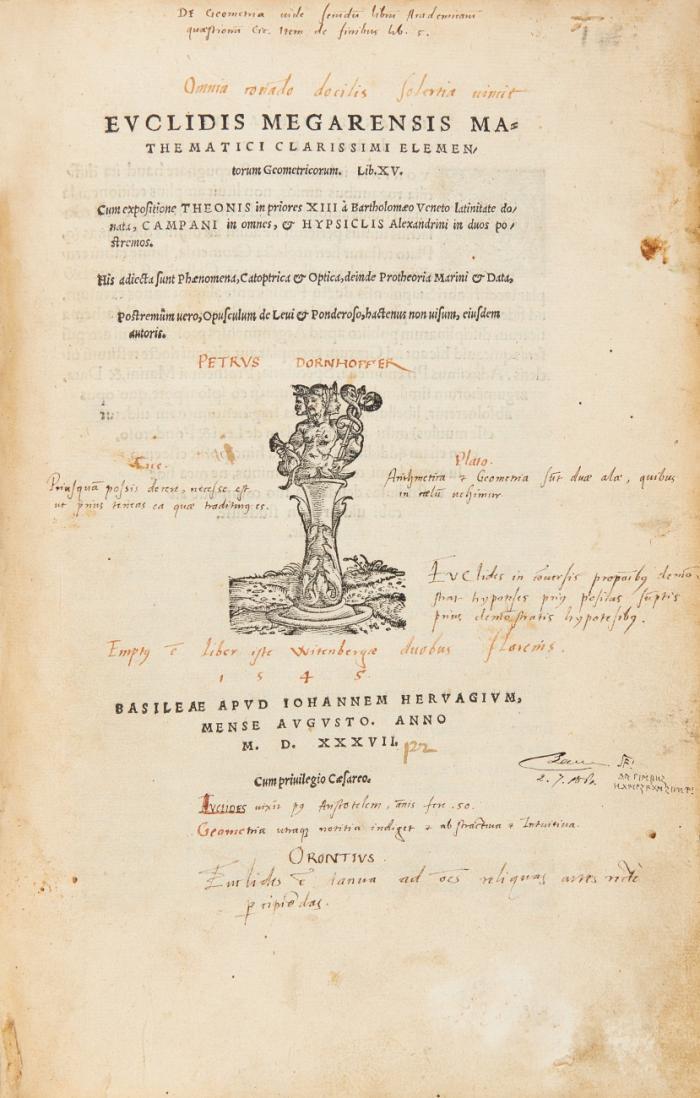 DE Geometria vide secundū librū Academicarū
quæstionū Cic. Item de finibus lib. 5.
Omnia conādo docilis Solertia vincit
EVCLIDIS MEGARENSIS MA=
THEMATICI CLARISSIMI ELEMEN/
torum Geometricorum. Lib. XV.
Cum expositione THEONIS in priores XIII à Bartholomæo Veneto latinitate do/
nata, CAMPANI in omnes, & HYPSICLIS Alexandrini in duos po/
stremos.
His adiecta sunt Phænomena, Catoptrica & Optica, deinde Protheoria Marini & Data,
Postremùm uero, Opusculum de Leui & Ponderoso, hactenus non uisum, eiusdem
autoris.
PETRVS DORNHOFFER
Cic.
Priusquā possis docere, necesse est
ut prius teneas ea quæ traditurus es.
Plato.
Arithmetica & Geometria sūt duæ alæ, quibus
in cœlū vehimur
Euclides in cōuersis
hypotheses prius positas
prius hypotesibus.
Emptus ē liber iste Witenbergæ duobus florenis.
1 5 4 5
BASILEAE APVD IOHANNEM HERVAGIVM,
MENSE AVGVSTO. ANNO
M. D. XXXVII.
Cum priuilegio Cæsareo.
EVCLIDES vixit Aristotelem, annis fere 50.
Geometria notitia indiget & abstractiua & Intuitiua.
ORONTIVS
Euclides ē ianua ad oēs reliquas artes rectè
percipiēdas.